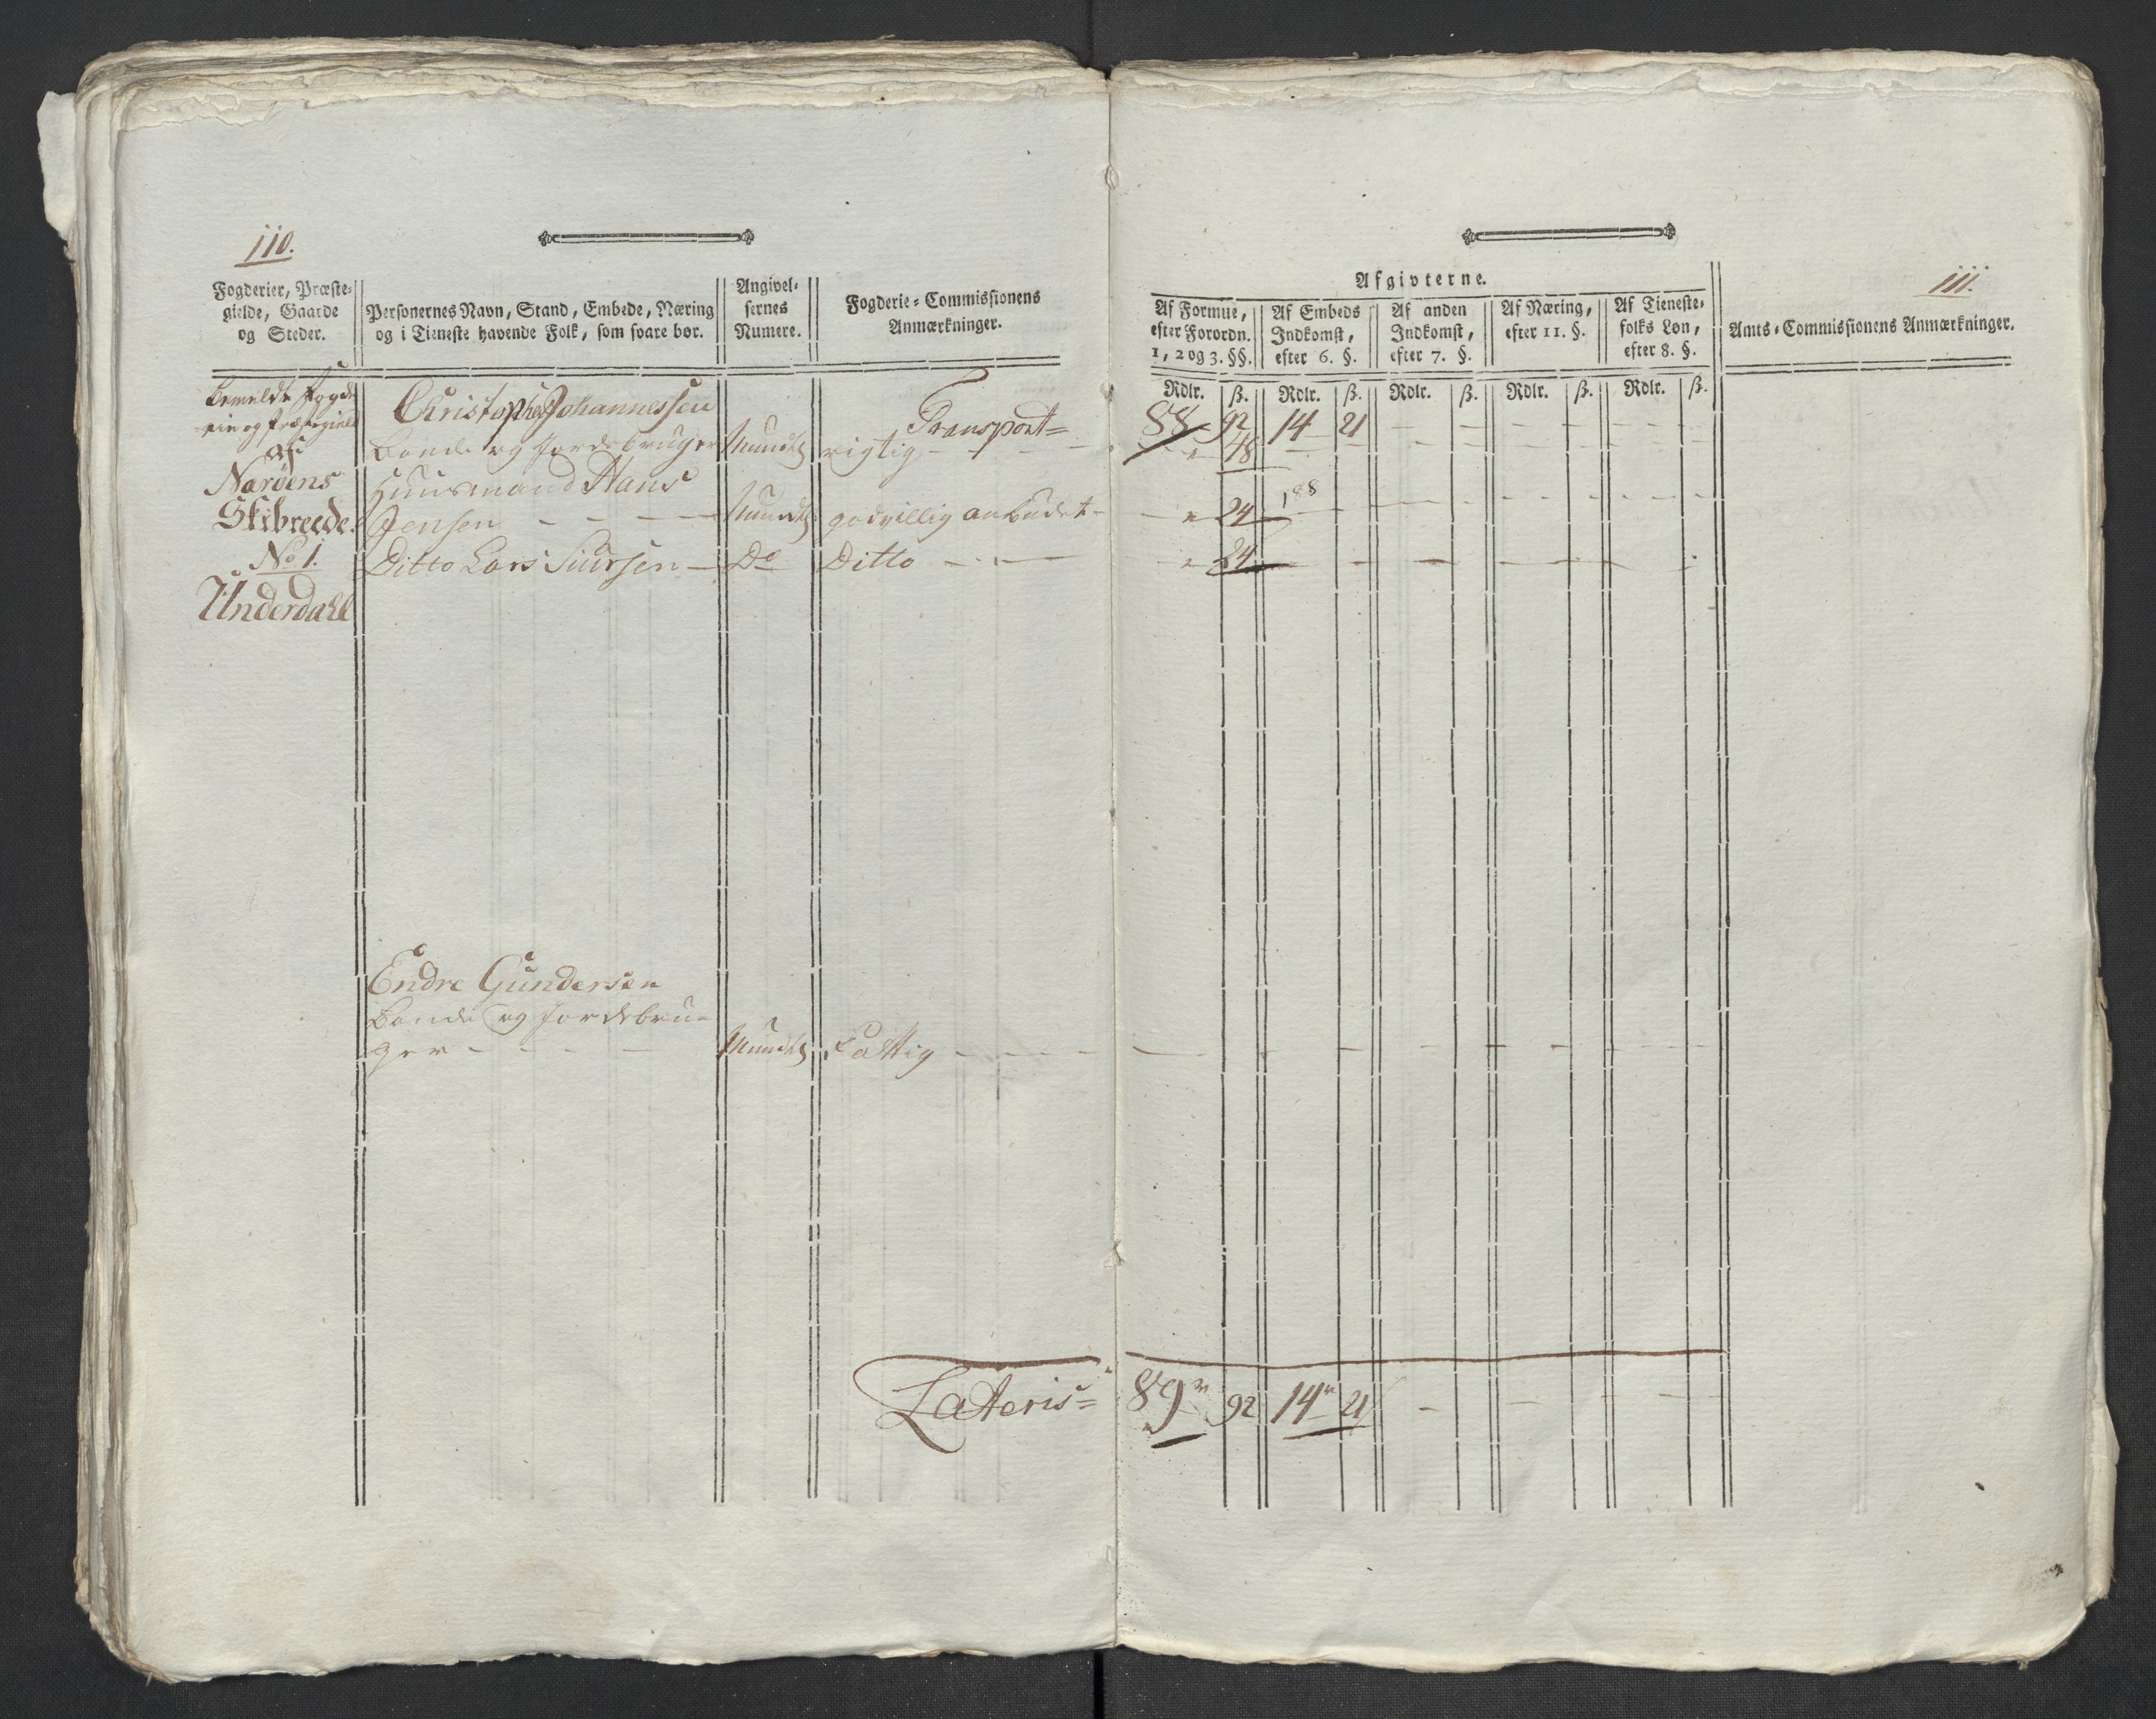 110.
Fogderier, Præste-
gielde, Gaarde
og Steder.
Personernes Navn, Stand, Embede, Næring
og i Tieneste havende Folk, som svare bør.
Angivel-
sernes
Numere.
Fogderie-Commissionens
Anmærkninger.
bemeldte Fogde
rie og Præstegield
Nærøens
Skibreede.
No 1.
Underdahl
Christopher Johannessen
Transport=
Bonde og Jordebruger Mundtl rigtig - - -
Huusmand Hans
Jensen - - - Mundtl godvillig anbudet -
Ditto Lars Siursen - Do Ditto - - -
Endre Gundersen
Bonde og Jordebru-
ger - - - - Mundtl Fattig - - - -
Lateris=
111.
Afgivterne.
Af Formue,
efter Forordn.
1, 2 og 3. §§.
Af Embeds
Indkomst,
efter 6. §.
Af anden
Indkomst,
efter 7. §.
Af Næring,
efter 11. §.
Af Tieneste-
folks Løn,
efter 8. §.
Amts-Commissionens Anmærkninger.
Rdlr. ß. Rdlr. ß. Rdlr. ß. Rdlr. ß. Rdlr. ß.
88 92 14 21 - - - - - -
- 48 - - - - - - - -
188
- 24 - - - - - - - -
- 24 - - - - - - - -
- - - - - - - - - -
89 92 14 21 - - - -